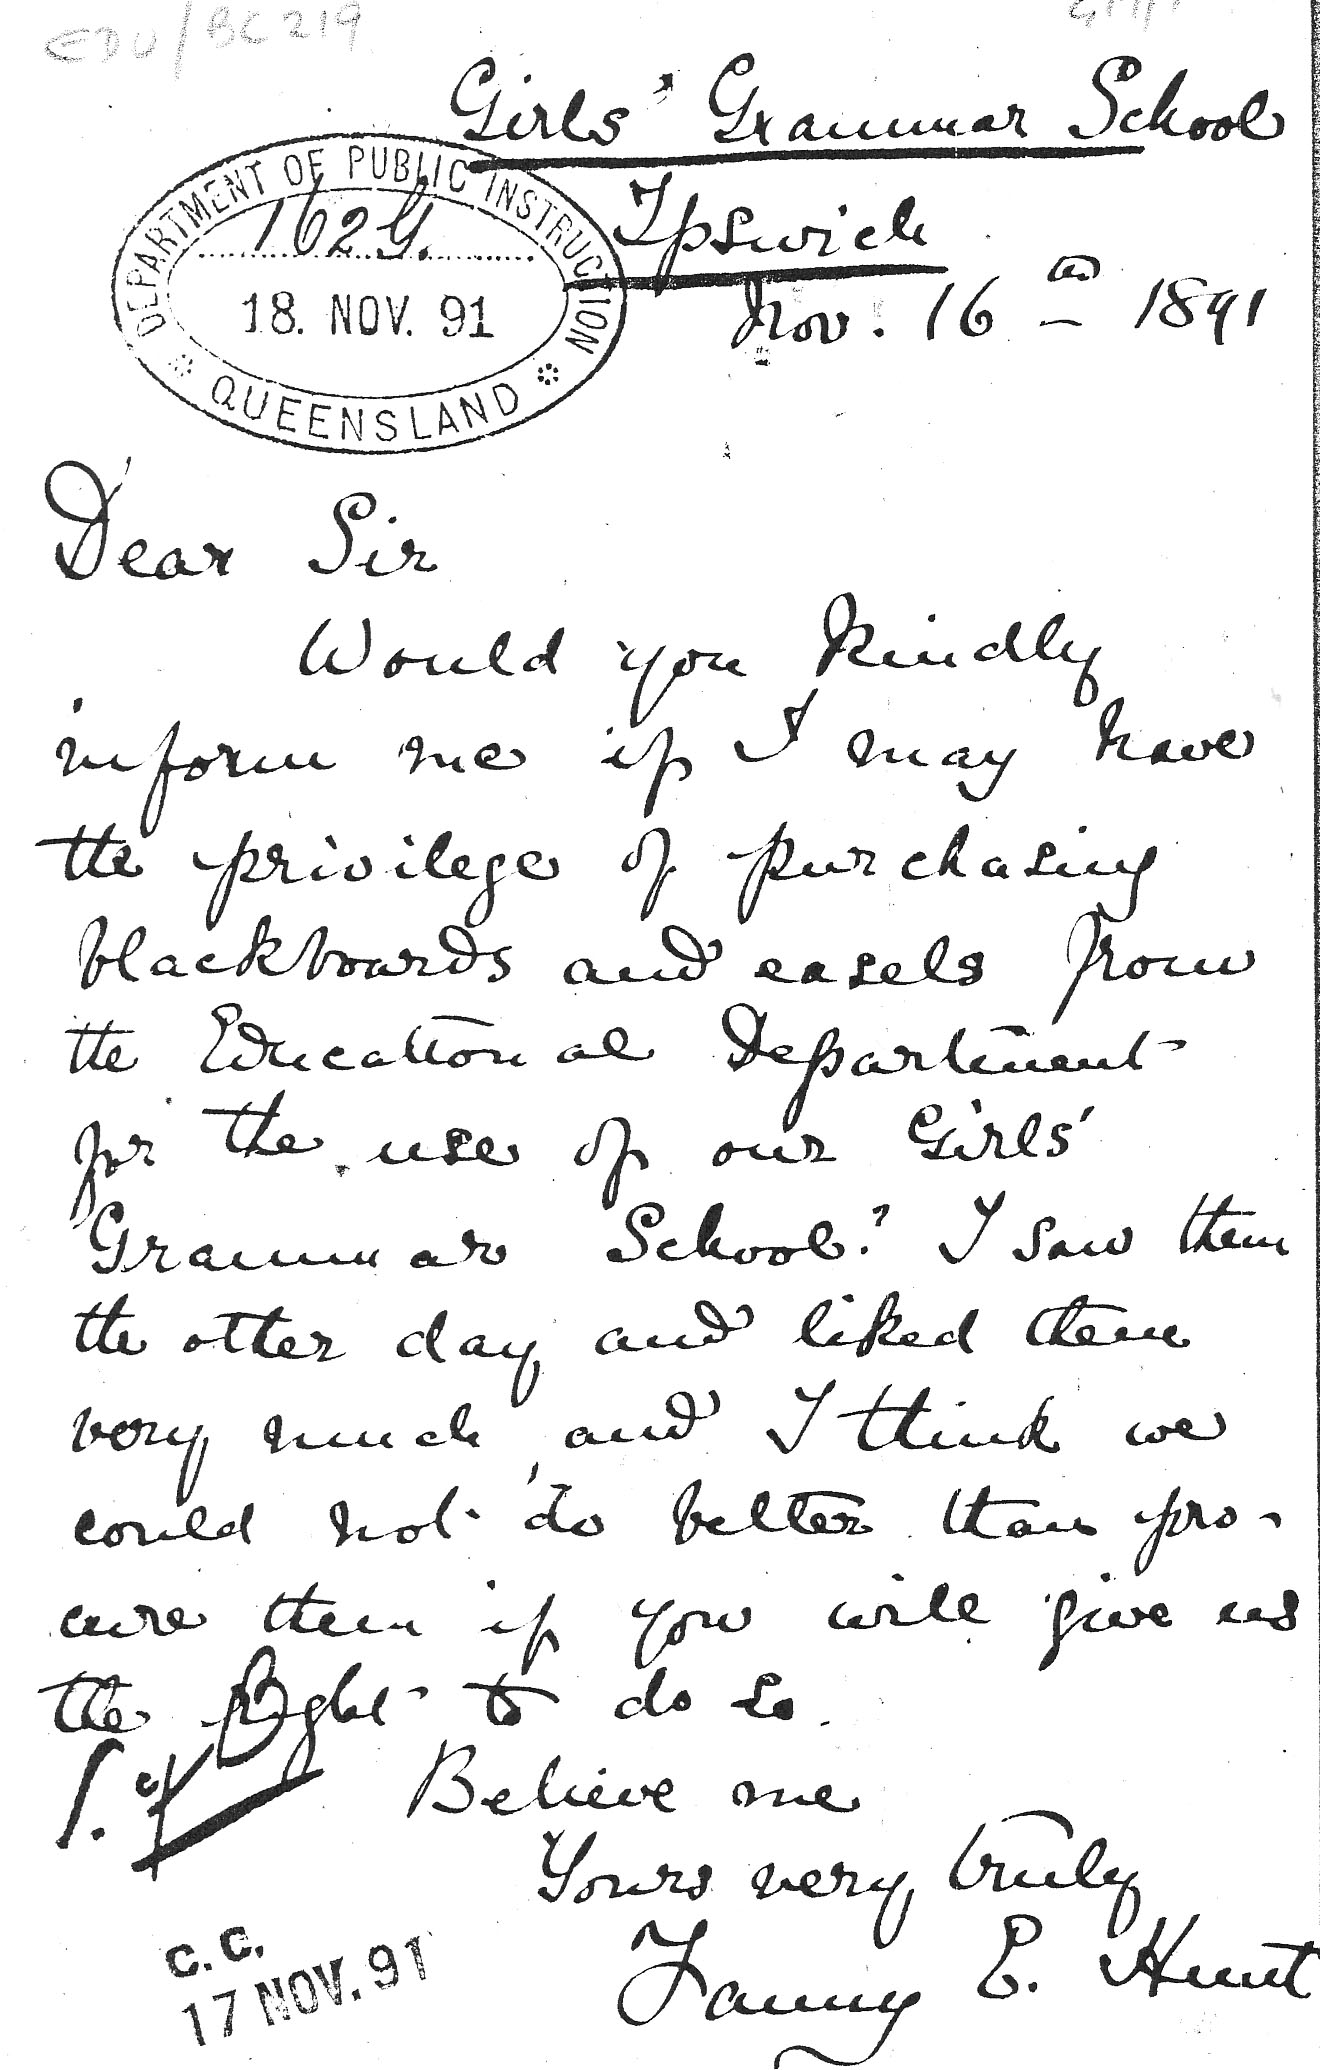 EDU/BC219
Girls' Grammar School
DEPARTMENT OF PUBLIC INSTRUCTION
1629.
18. NOV. 91
QUEENSLAND
Ipswich
Nov. 16th 1891
Dear Sir
Would you kindly
inform me if I may have
the privilege of purchasing
blackboards and easels from
the Educational Department
for the use of our Girls'
Grammar School? I saw them
the other day and liked them
very much, and I think we
could not do better than pro-
cure them if you will give us
the right to do so.
Believe me
Yours very truly
Fanny E. Hunt
C.C.
17 NOV. 91